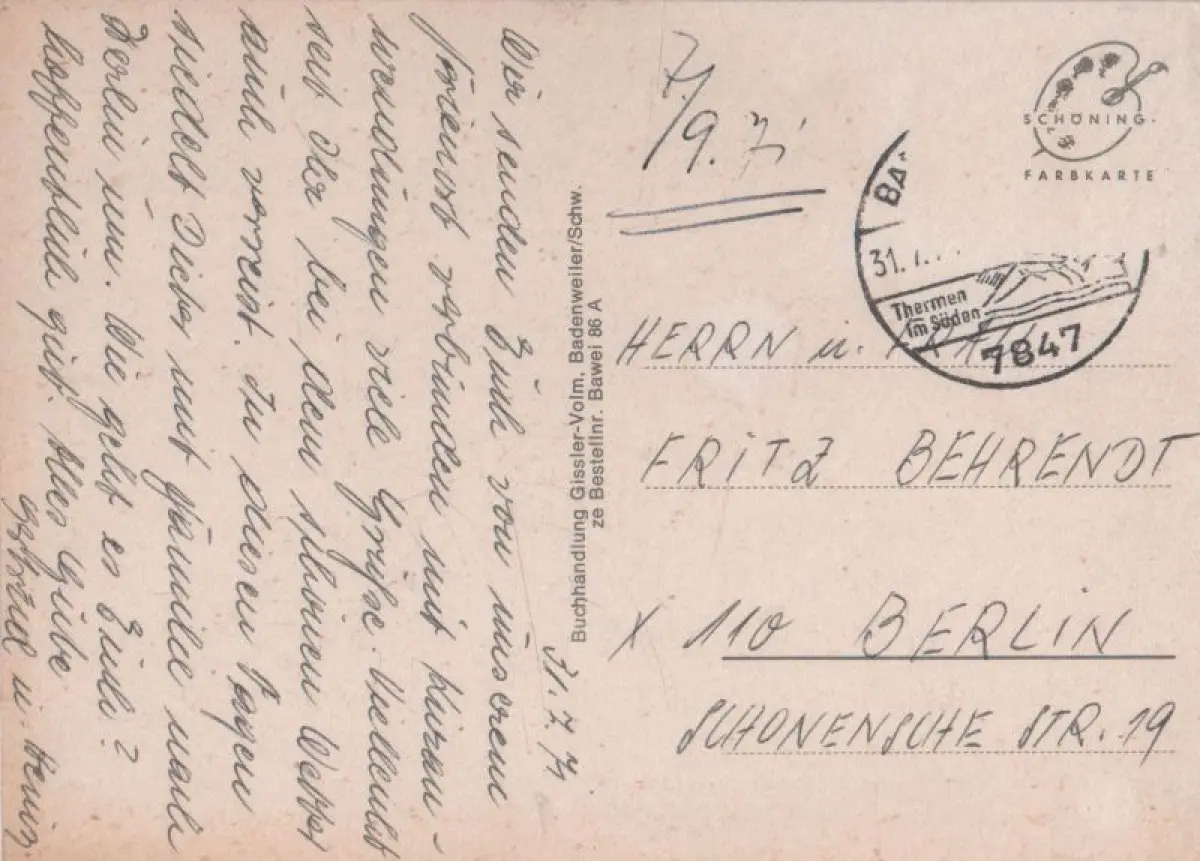 31. 7. 74
Wir senden Euch von unserem
Ferienort verbunden mit Kuran-
wendungen viele Grüße. Vielleicht
seit Ihr bei dem schönen Wetter
auch verreist. In diesen Tagen
siedelt Dieter mit Familie nach
Berlin um. Wie geht es Euch?
hoffentlich gut. Alles Gute
Gertrud u. Heinz
Buchhandlung Gissler-Volm, Badenweiler/Schw.
ze Bestellnr. Bawei 86 A
SCHÖNING
FARBKARTE
BA
31.7.
Thermen
im Süden
7847
HERRN u. FRAU
FRITZ BEHRENDT
X 110 BERLIN
SCHONENSCHE STR. 19